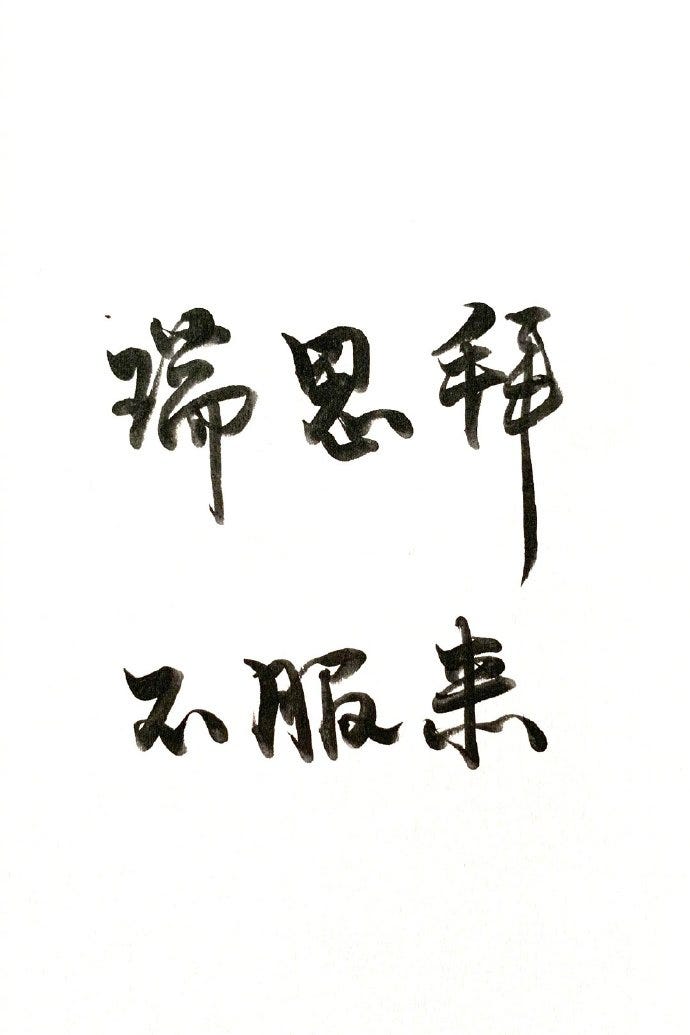 瑞思拜
不服来